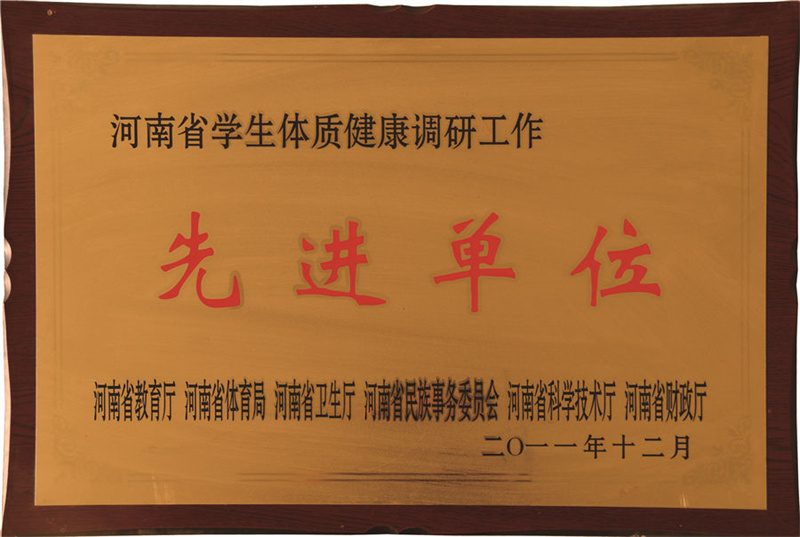 河南省学生体质健康调研工作
先进单位
河南省教育厅 河南省体育局 河南省卫生厅 河南省民族事务委员会 河南省科学技术厅 河南省财政厅
二〇一一年十二月